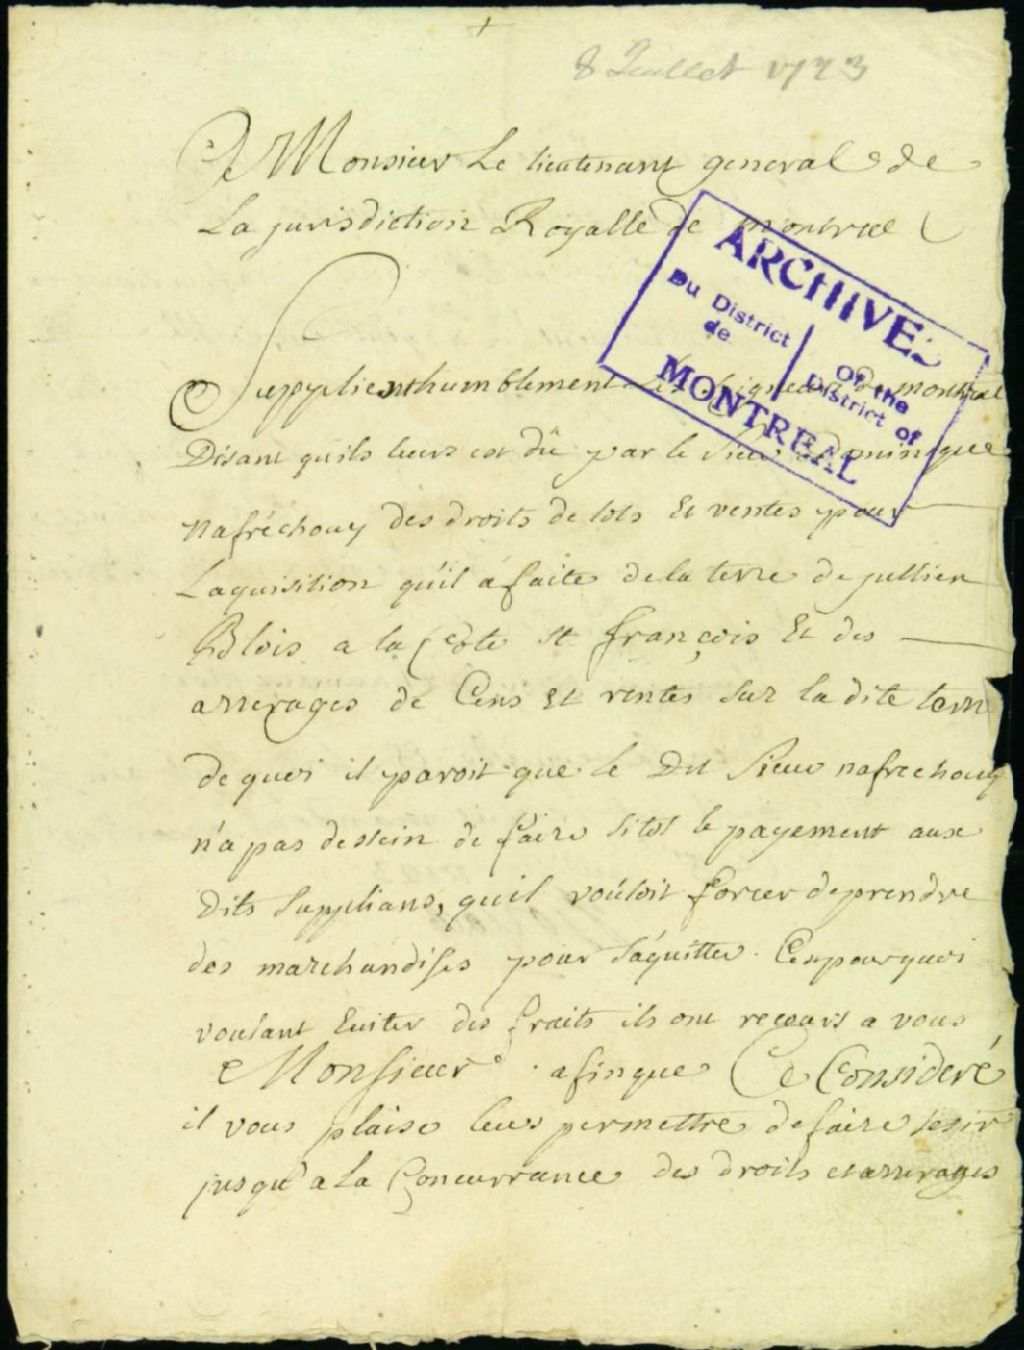 8 Juillet 1723
A Monsieur Le lieutenant general de
La jurisdiction Royalle de montreal
ARCHIVES
Du District de
Of the District of
MONTREAL
Supplient humblement Les Seigneurs de montreal
Disant quils leurs est dû par le Sieur Dominique
nafréchouy des droits de lots Et ventes pour
Laquisition qu'il a faite de la terre de jullien
Blois a la Côte st françois Et des
arrerages de Cens Et rentes sur la dite terre
de quoi il paroit que le Dit Sieur nafrechouy
n'a pas dessein de faire sitot le payement aux
Dits Supplians, quil vouloit forcer de prendre
des marchandises pour s'aquitter. Cespourquoi
voulant Eviter des fraits ils ont recours a vous
Monsieur afinque Ce Consideré
il vous plaise leurs permettre de faire sesir
jusqu'a La Concurrance des droits et arrerages